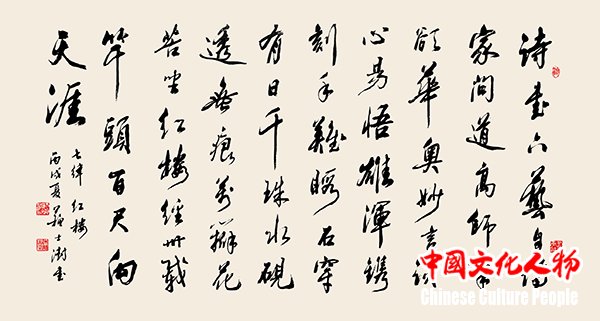 诗书六艺自
家问道高师
华奥妙言谈
心易悟雄浑镌
刻手难石穿
有日千珠水砚
透痕万瓣花
苦坐红楼经卅载
竿头百尺向
天涯
七律 红楼
丙戌夏 苏士澍书
中国文化人物
Chinese Culture People